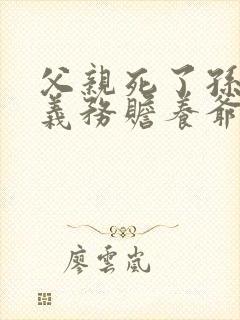 父親死了孫
義務贍養爺
廖雲嵐